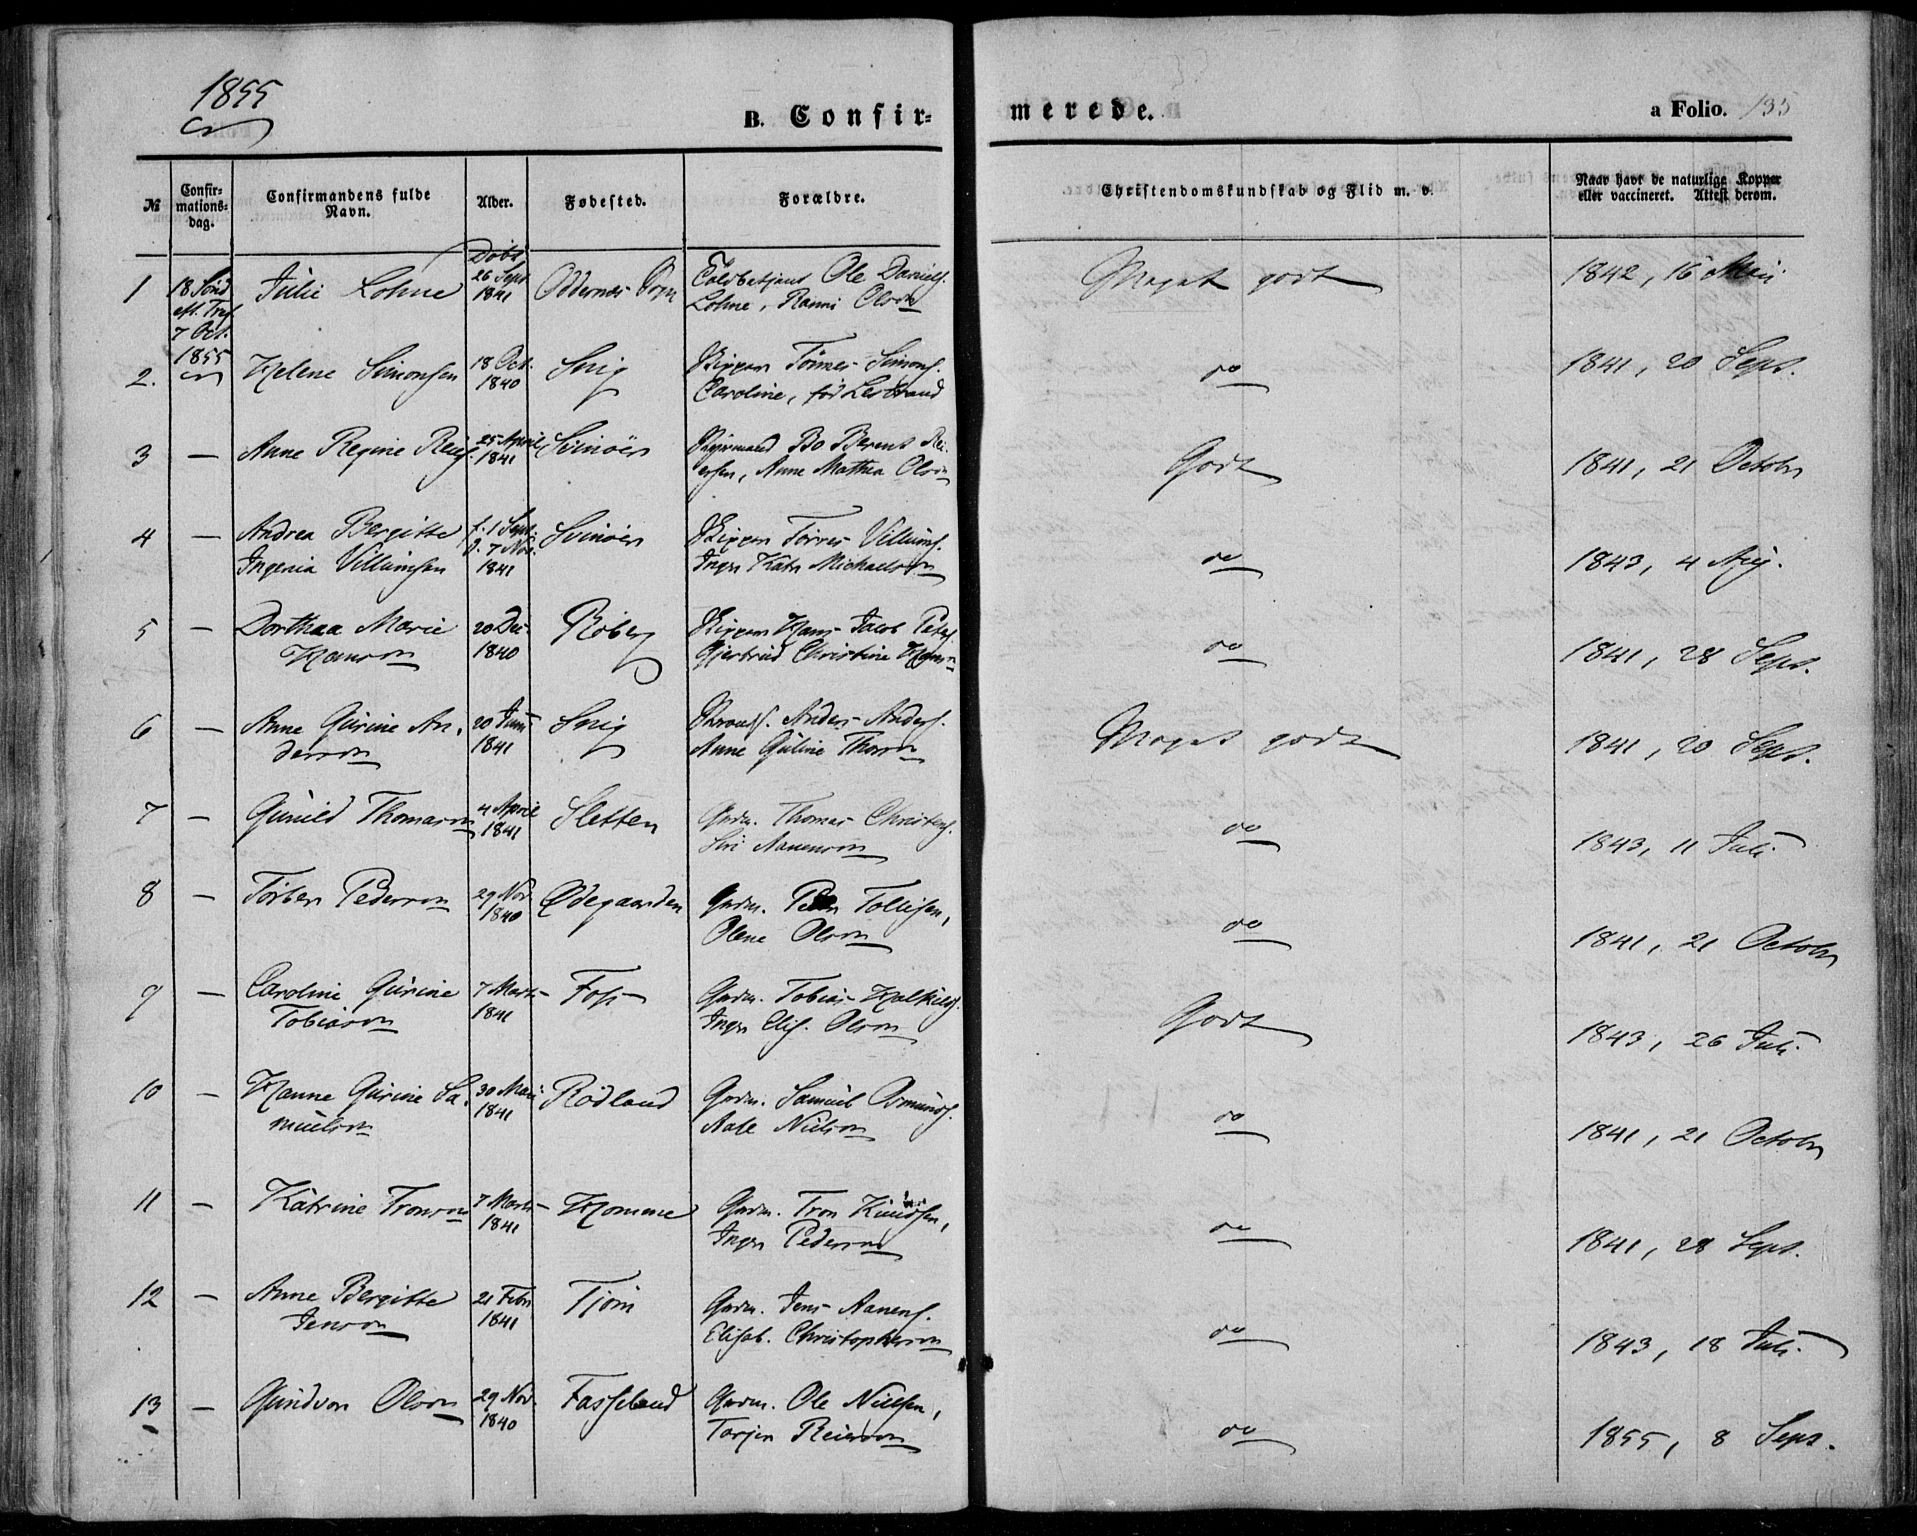 1855
B. Confir=
merede.
a Folio. 135
№
Confir=
mations=
dag.
Confirmandens fulde
Navn.
Alder.
Fødested.
Forældre.
Christendomskundskab og Flid m. v.
Naar havt de naturlige Kopper
eller vaccineret. Attest derom.
1
18 Sönd
eft. Tref.
7 Oct.
1855
Julie Lohne
Döbt
26 Sept
1841
Oddernes Sogn
Toldbetjent Ole Daniels.
Lohne, Ranni Olsen
Meget godt
1842, 16 Mai
2.
Helene Simonsen
18 Oct.
1840
Snig
Skipper Tönnes Simons.
Caroline, föd
do
1841, 20 Sept.
3 —
Anne Regine Reiers.
25 April
1841
Svinöer
Bo Berent Rei-
ersen, Anne Mathea Olsen
Godt
1841, 21 Octobr
4 —
Andrea Bergitte
Ingenia Villumsen
f. 1 Sept.
d. 7 Nov.
1841
Svinöer
Skipper Törres Villums.
Inger Katr Michaelsen
do
1843, 4 Aug.
5 —
Dorthea Marie
Hansen
20 Dec
1840
Roberg
Skipper Hans Jacob Peters.
Gjertrud Christine Hans
do
1841, 28 Sept.
6 —
Anne Gurine An-
dersen
20 Juni
1841
Snig
Anders Anders.
Anne Guline Thorsen
Meget godt
1841, 20 Sept.
7 —
Gunild Thomasen
4 April
1841
Sletten
Grdm. Thomas Christens.
Siri Aanensen
do
1843, 11 Juli
8 —
Torber Pedersen
29 Nov
1840
Ødegaarden
Grdm. Peder Tollefsen,
Olene Olsen
do
1841, 21 Octobr
9 —
Caroline Gurine
Tobiasen
7 Marts
1841
Foss
Grdm. Tobias
Inger Elis. Olsen
Godt
1843, 26 Juli
10 —
Hanne Gurine Sa-
muelsen
30 Mai
1841
Rödland
Grdm. Samuel Omunds.
Aase Nielsen
do
1841, 21 Octobr
11 —
Katrine Tronsen
7 Marts
1841
Homme
Grdm. Tron Knudsen,
Inger Pedersen
do
1841, 28 Sept.
12 —
Anne Bergitte
Jensen
21 Febr
1841
Tjom
Grdm. Jens Aanens.
Elisab. Christophersen
do
1843, 18 Juli
13 —
Gundvor Olsen
29 Nov.
1840
Fasseland
Grdm. Ole Nielsen,
Torjer Reiersen
do
1855, 8 Sept.